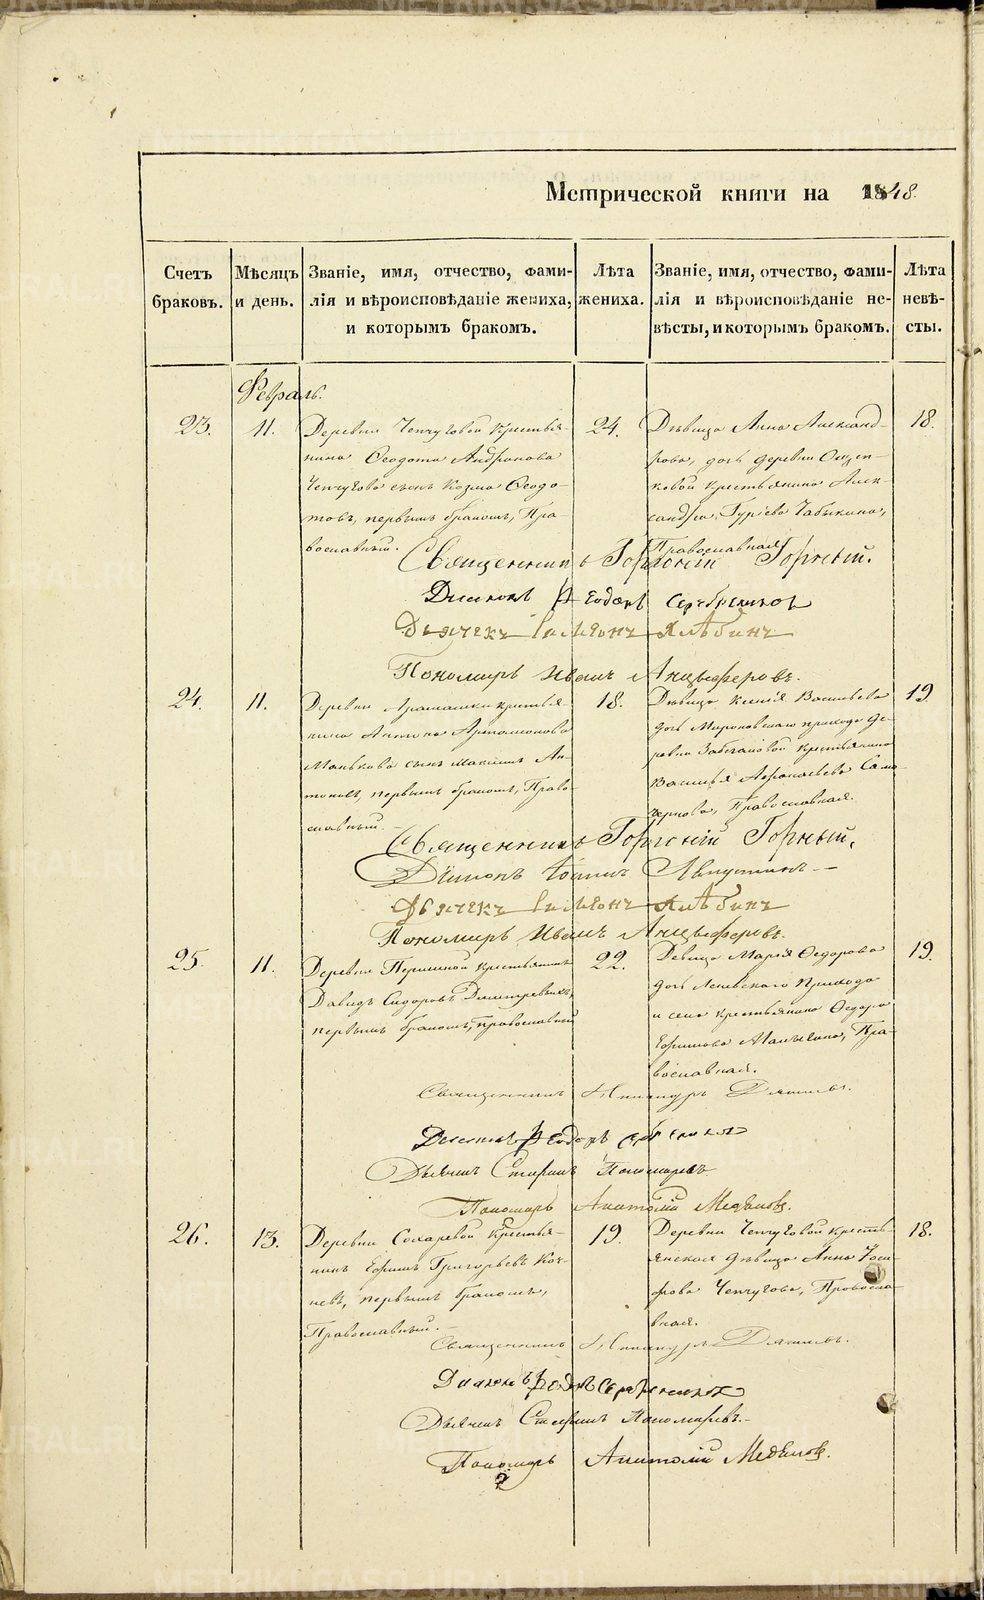 Метрической книги на 1848.
Счетъ браковъ.
Мѣсяцъ и день.
Званіе, имя, отчество, фами-
лія и вѣроисповѣданіе жениха,
и которымъ бракомъ.
Лѣта
жениха.
Званіе, имя, отчество, фами-
лія и вѣроисповѣданіе не-
вѣсты, и которымъ бракомъ.
Лѣта
невѣ-
сты.
Февраль.
23.
11.
Деревни Ченчуговой крестья-
нина Ѳеодота Андронова
Ченчугова сынъ Козма Ѳеодо-
товъ, первымъ бракомъ, Пра-
вославный.
24.
Дѣвица Анна Александ-
рова, дочь деревни
крестьянина Алек-
сандра Гурьева Чабыкина,
Православная.
18.
Священникъ Горгоній Горный.
Диаконъ Ѳеодоръ Серебрениковъ
Дьячекъ Симеонъ Хлѣбинъ
Пономарь Иванъ Анцыферовъ.
24.
11.
Деревни Арамашки крестья-
нина Антона Артамонова
Манькова сынъ Максимъ Ан-
тоновъ, первымъ бракомъ, Право-
славный.
18.
Дѣвица Ксенія Васильева
дочь Мироновскаго прихода де-
ревни крестьянина
Василья Аѳанасьева
Православная.
19.
Священникъ Горгоній Горный.
Діаконъ Іоаннъ
Дьячекъ Симеонъ Хлѣбинъ
Пономарь Иванъ Анцыферовъ.
25.
11.
Деревни Першиной крестьянинъ
Давидъ Сидоровъ
первымъ бракомъ, православный
22.
Девица Марія Ѳедорова
дочь Леневскаго прихода
и села крестьянина Ѳедора
Ефимова Православная.
19.
Священникъ Никандръ
Диаконъ Ѳеодоръ Серебрениковъ
Дьячекъ Стефанъ Пономаревъ
Пономарь Анатолій
26.
13.
Деревни Сохаревой крестья-
нинъ Ефимъ Григорьевъ Коч-
невъ, первымъ бракомъ,
Православный.
19.
Деревни Ченчуговой кресть-
янская дѣвица Анна
Ченчугова, Правосла-
вная.
18.
Священникъ Никандръ
Диаконъ Ѳеодоръ Серебрениковъ
Дьячекъ Стефанъ Пономаревъ.
Пономарь Анатолій
METRIKI.GASO-URAL.RU